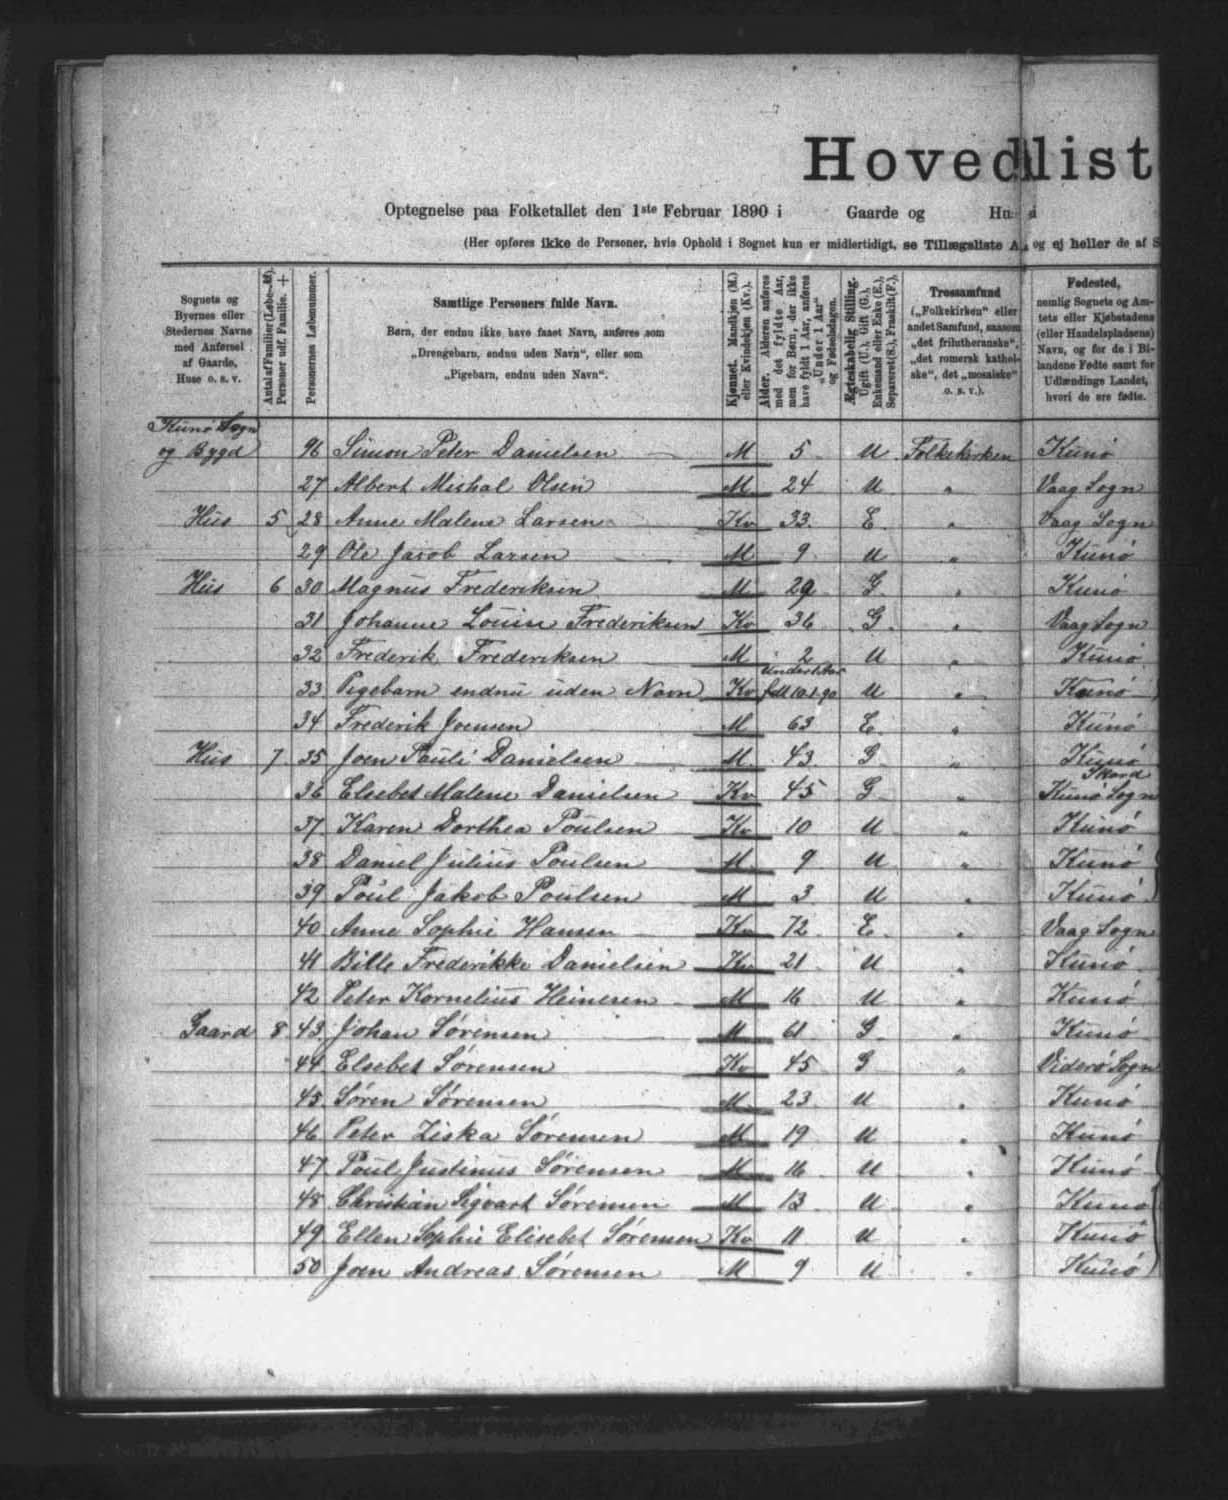 Hovedlist
Optegnelse paa Folketallet den 1ste Februar 1890 i Gaarde og Hu i
(Her opføres ikke de Personer, hvis Ophold i Sognet kun er midlertidigt, se Tillægsliste A, og ej heller de af S
Sognets og Byernes eller Stedernes Navne med Anførsel af Gaarde, Huse o. s. v.
Antal af Familier (Løbe-№). Personer udf. Familie. +
Personernes Løbenummer.
Samtlige Personers fulde Navn.
Børn, der endnu ikke have faaet Navn, anføres som
„Drengebarn, endnu uden Navn“, eller som
„Pigebarn, endnu uden Navn“.
Kjønnet. Mandkjøn (M.) eller Kvindekjøn (Kv.).
Alder. Alderen anføres med det fyldte Aar, men for Børn, der ikke have fyldt 1 Aar, anføres „Under 1 Aar“ og Fødselsdagen.
Ægteskabelig Stilling. Ugift (U.), Gift (G.), Enkemand eller Enke (E.), Separeret (S.), Fraskilt (F.).
Trossamfund („Folkekirken“ eller andet Samfund, saasom „det frilutheranske“, „det romersk katholske“, det „mosaiske“ o. s. v.).
Fødested, nemlig Sognets og Amtets eller Kjøbstadens (eller Handelspladsens) Navn, og for de i Bilandene Fødte samt for Udlændinge Landet, hvori de ere fødte.
Kunø Sogn
og Bygd 26 Simon Peter Danielsen M 5 U Folkekirken Kunø
27 Albert Mishal Olsen M 24 U " Vaag Sogn
Hus 5 28 Anne Malene Larsen Kv 33 E " Vaag Sogn
29 Ole Jacob Larsen M 9 U " Kunø
Hus 6 30 Magnus Frederiksen M 29 G " Kunø
31 Johanne Louise Frederiksen Kv 36 G " Vaag Sogn
32 Frederik Frederiksen M 2 U " Kunø
Under 1 Aar
33 Pigebarn endnu uden Navn Kv fdt 10.1.90 U " Kunø
34 Frederik Joensen M 63 E " Kunø
Hus 7 35 Joen Pauli Danielsen M 43 G " Kunø
Skard
36 Elsebet Malene Danielsen Kv 45 G " Kunø Sogn
37 Karen Dorthea Poulsen Kv 10 U " Kunø
38 Daniel Julius Poulsen M 9 U " Kunø
39 Poul Jakob Poulsen M 3 U " Kunø
40 Anne Sophie Hansen Kv 72 E " Vaag Sogn
41 Bille Frederikke Danielsen Kv 21 U " Kunø
42 Peter Kornelius Heinesen M 16 U " Kunø
Gaard 8 43 Johan Sørensen M 61 G " Kunø
44 Elsebet Sørensen Kv 45 G " Viderø Sogn
45 Søren Sørensen M 23 U " Kunø
46 Peter Ziska Sørensen M 19 U " Kunø
47 Poul Justinus Sørensen M 16 U " Kunø
48 Christian Sigvart Sørensen M 13 U " Kunø
49 Ellen Sophie Elisebet Sørensen Kv 11 U " Kunø
50 Joen Andreas Sørensen M 9 U " Kunø